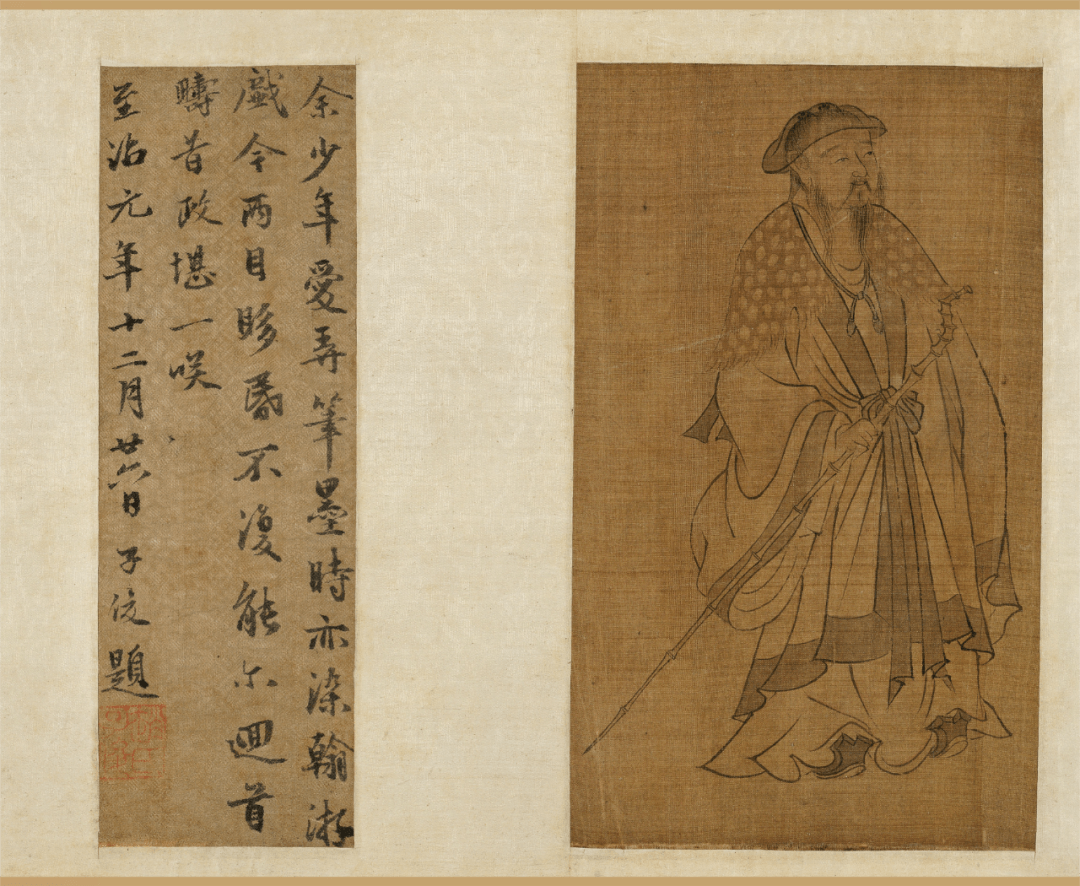 余少年愛弄筆墨時亦染翰游
戲今两目眵昬不復能尒迴首
疇昔政堪一咲
至治元年十二月廿六日子俊題